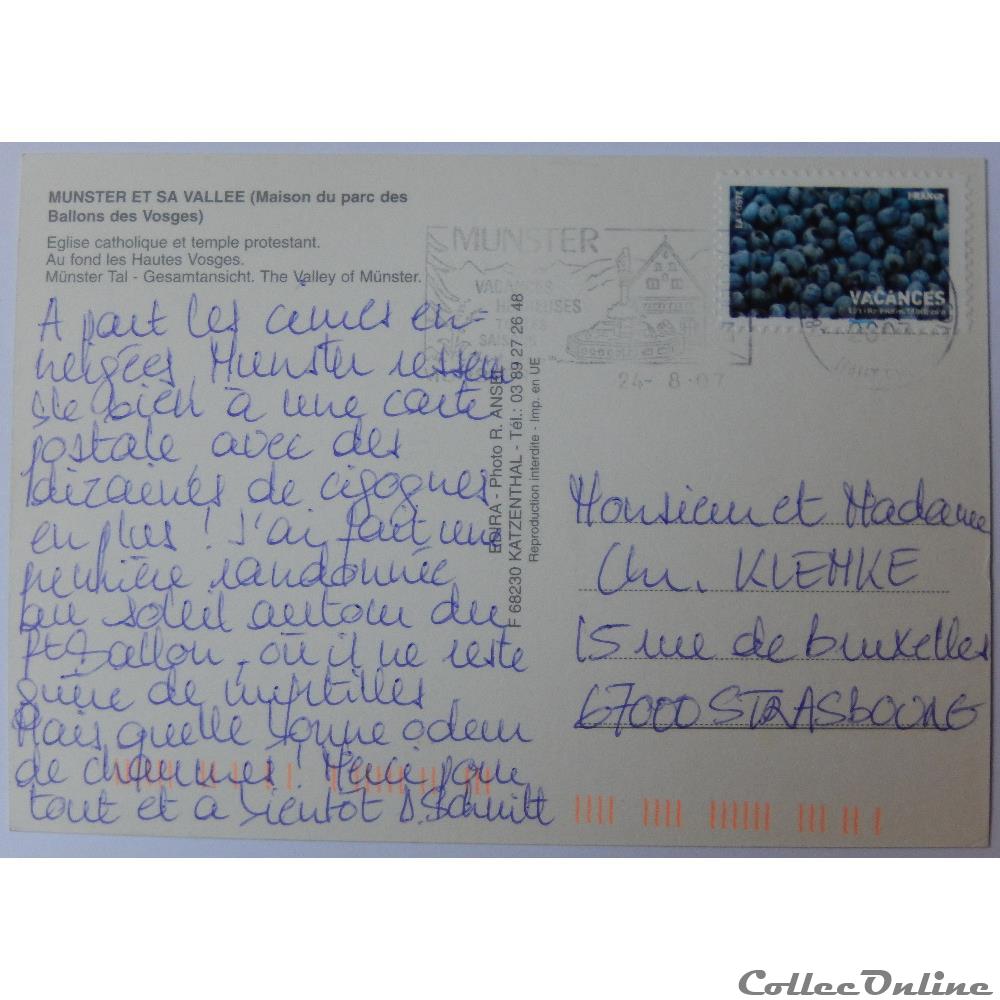 MUNSTER ET SA VALLEE (Maison du parc des
Ballons des Vosges)
Eglise catholique et temple protestant.
Au fond les Hautes Vosges.
Münster Tal - Gesamtansicht. The Valley of Münster.
A part les cimes en-
neigées, Munster ressem
ble bien à une carte
postale avec des
dizaines de cigognes
en plus ! J'ai fait une
première randonnée
au soleil autour du
Pt Ballon, où il ne reste
guère de myrtilles
Mais quelle bonne odeur
de chaumes ! Merci pour
tout et à bientôt D.Schmitt
EDIRA - Photo R. ANSEL
F 68230 KATZENTHAL - Tél.: 03 89 27 26 48
Reproduction interdite - Imp. en UE
MUNSTER
VACANCES
HEUREUSES
TOUTES
SAISONS
24- 8-07
LA POSTE
FRANCE
VACANCES
Monsieur et Madame
Chr. KLEMKE
15 rue de bruxelles
67000 STRASBOURG
CollecOnline